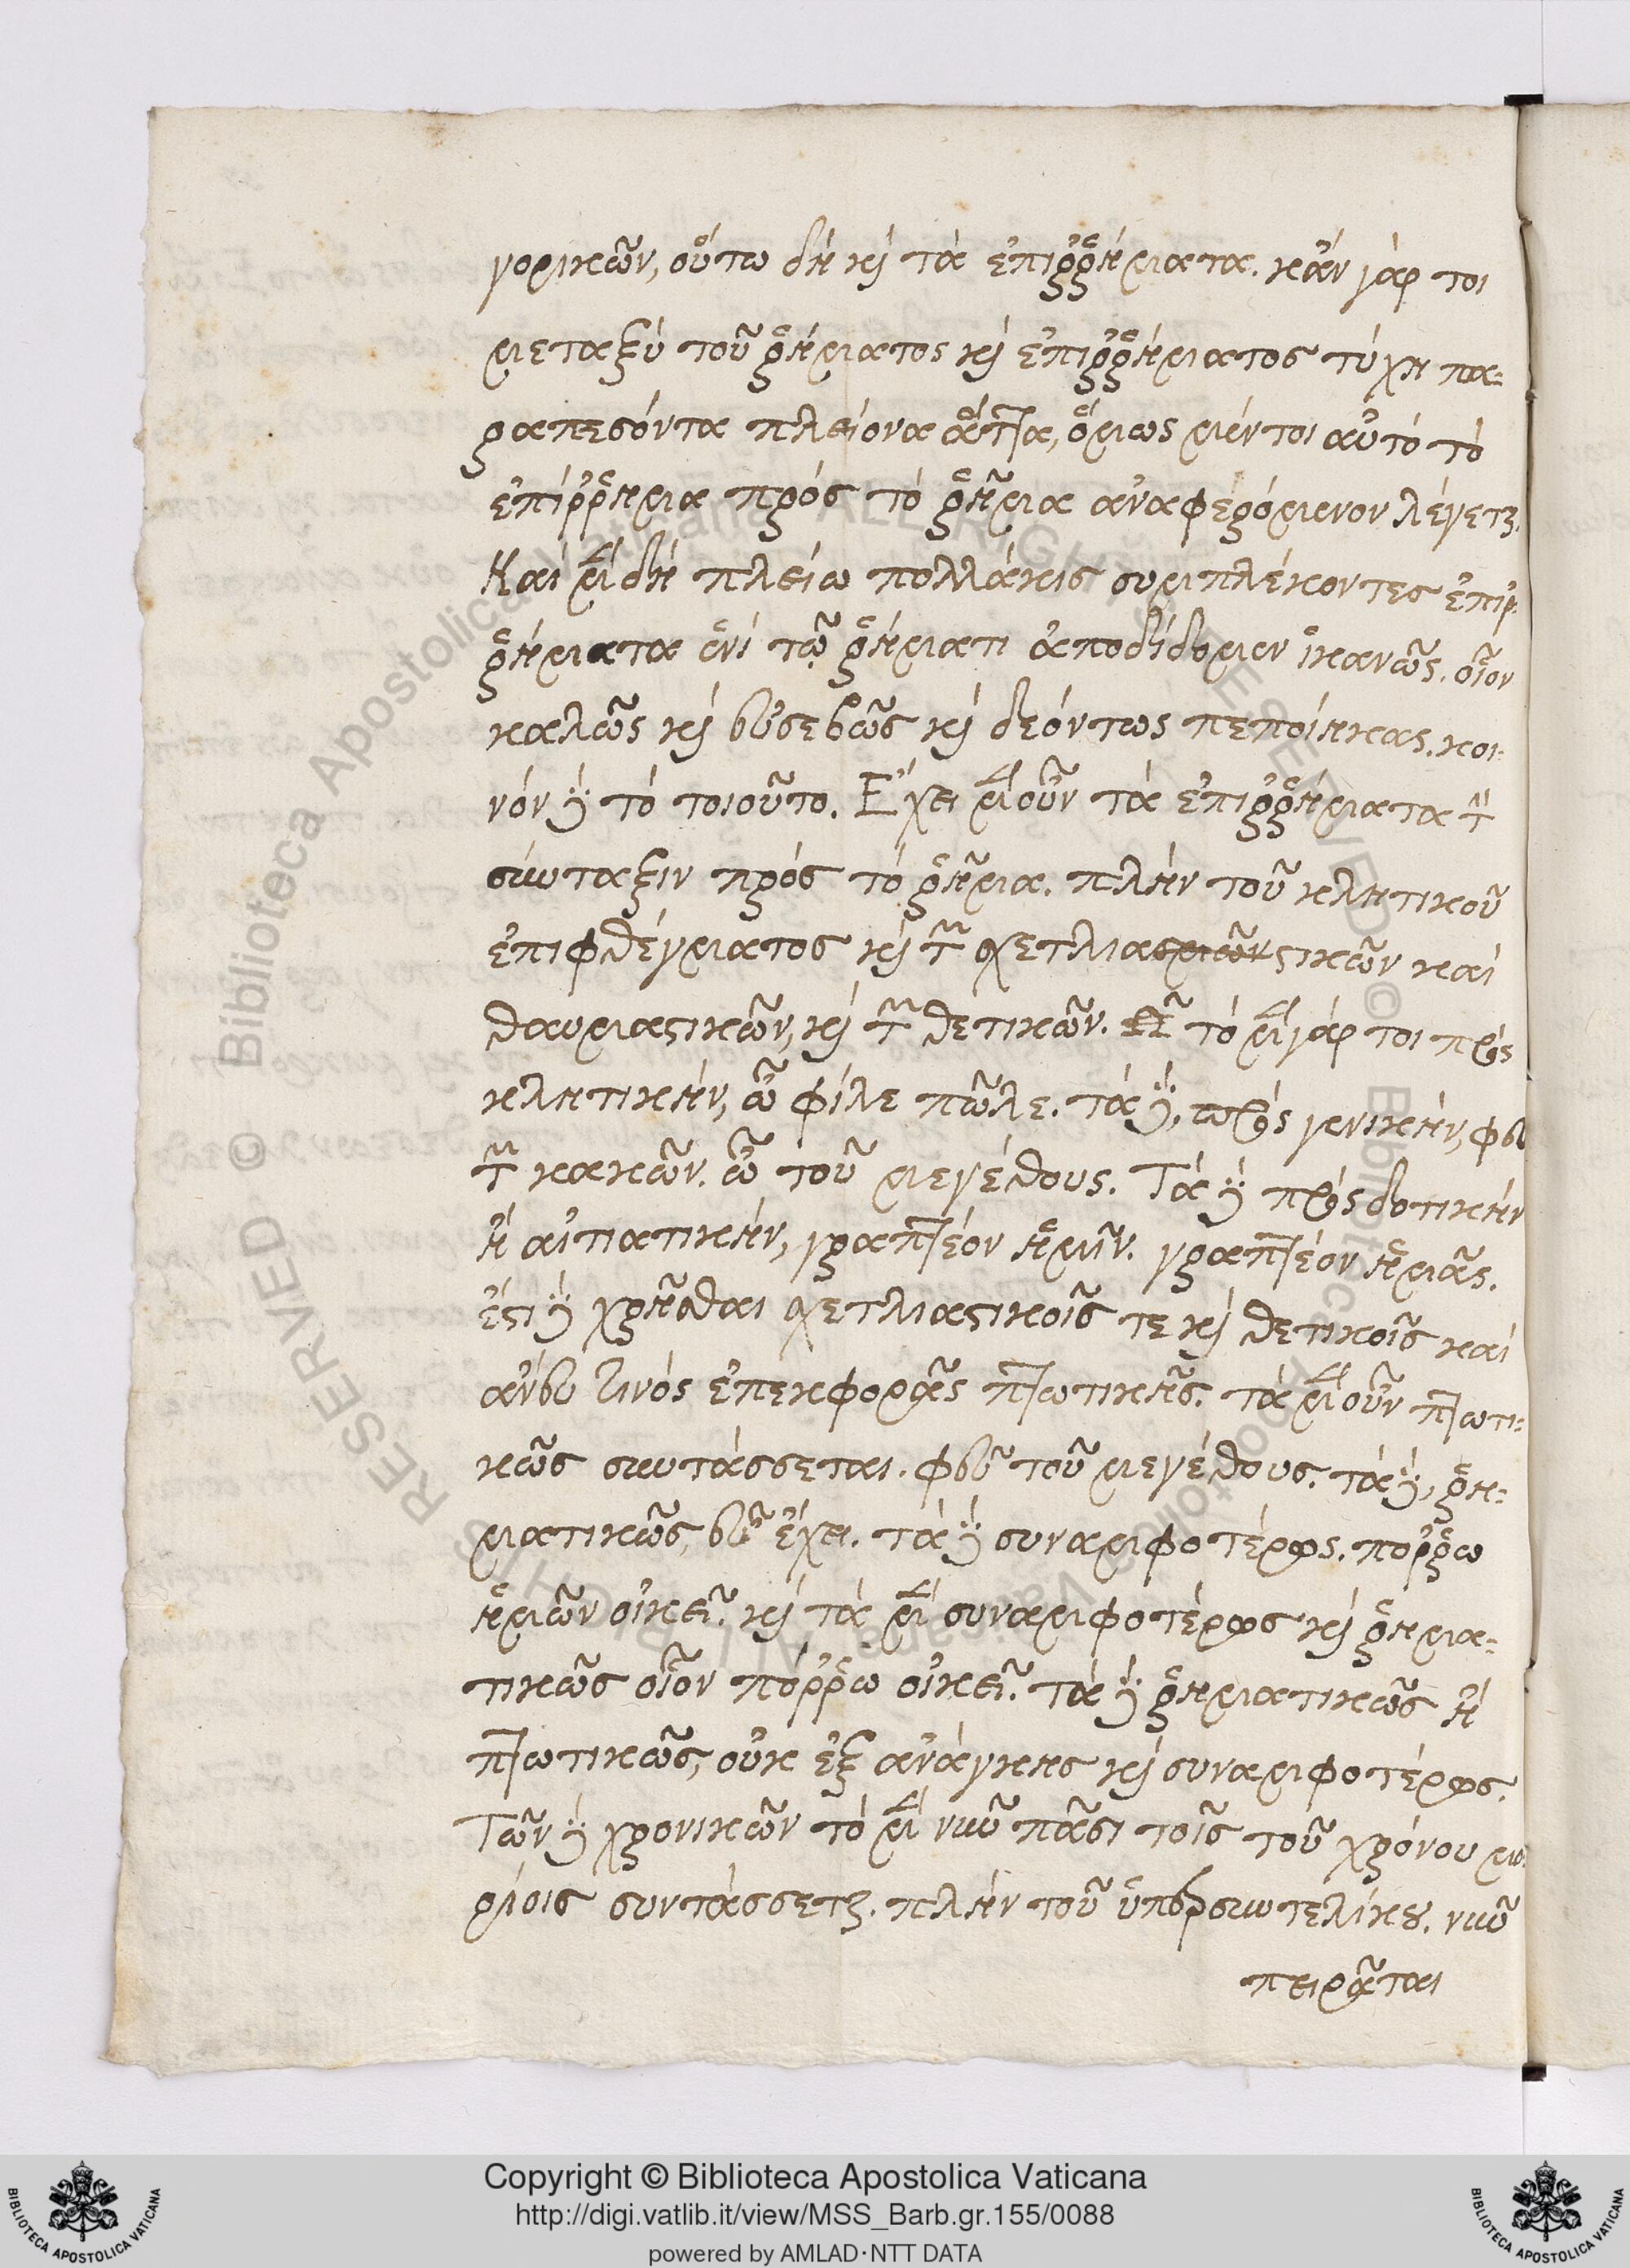 γορικῶν, οὕτω δὴ καὶ τὰ ἐπιῤῥήματα. κἂν γάρ τοι
μεταξὺ τοῦ ῥήματος καὶ ἐπιῤῥήματος τύχη πα-
ραπεσόντα πλείονα ἅττα, ὅμως μέντοι αὐτὸ τὸ
ἐπίῤῥημα πρὸς τὸ ῥῆμα ἀναφερόμενον λέγεται.
Καὶ μὲν δὴ πλείω πολλάκις συμπλέκοντες ἐπιῤ-
ῥήματα ἑνὶ τῷ ῥήματι ἀποδίδομεν ἱκανῶς. οἷον
καλῶς καὶ εὐσεβῶς καὶ δεόντως πεποίηκας. κοι-
νὸν δὲ τὸ τοιοῦτο. Ἔχει μὲν οὖν τὰ ἐπιῤῥήματα τὴν
σύνταξιν πρὸς τὸ ῥῆμα. πλὴν τοῦ κλητικοῦ
ἐπιφθέγματος καὶ τῶν σχετλιασμῶνστικῶν καὶ
θαυμαστικῶν, καὶ τῶν θετικῶν. τὸ μὲν γάρ τοι πρὸς
κλητικὴν, ὦ φίλε πῶλε. τὰ δὲ, πρὸς γενικὴν, φεῦ
τῶν κακῶν. ὢ τοῦ μεγέθους. Τὰ δὲ πρὸς δοτικὴν
ἢ αἰτιατικὴν, γραπτέον ἡμῖν. γραπτέον ἡμᾶς.
ἔστι δὲ χρῆσθαι σχετλιαστικοῖς τε καὶ θετικοῖς καὶ
ἄνευ τινὸς ἐπεκφορᾶς πτωτικῆς. τὰ μὲν οὖν πτωτι-
κῶς συντάσσεται. φεῦ τοῦ μεγέθους. τὰ δὲ, ῥη-
ματικῶς, εὖ ἔχει. τὰ δὲ συναμφοτέρως. πόῤῥω
ἡμῶν οἰκεῖ. καὶ τὰ μὲν συναμφοτέρως καὶ ῥημα-
τικῶς οἷον πόῤῥω οἰκεῖ. τὰ δὲ ῥηματικῶς ἢ
πτωτικῶς, οὐκ ἐξ ἀνάγκης καὶ συναμφοτέρως.
Τῶν δὲ χρονικῶν τὸ μὲν νῦν πᾶσι τοῖς τοῦ χρόνου μο-
ρίοις συντάσσεται. πλὴν τοῦ ὑπερσυντελίκου. νῦν
πειρᾶται